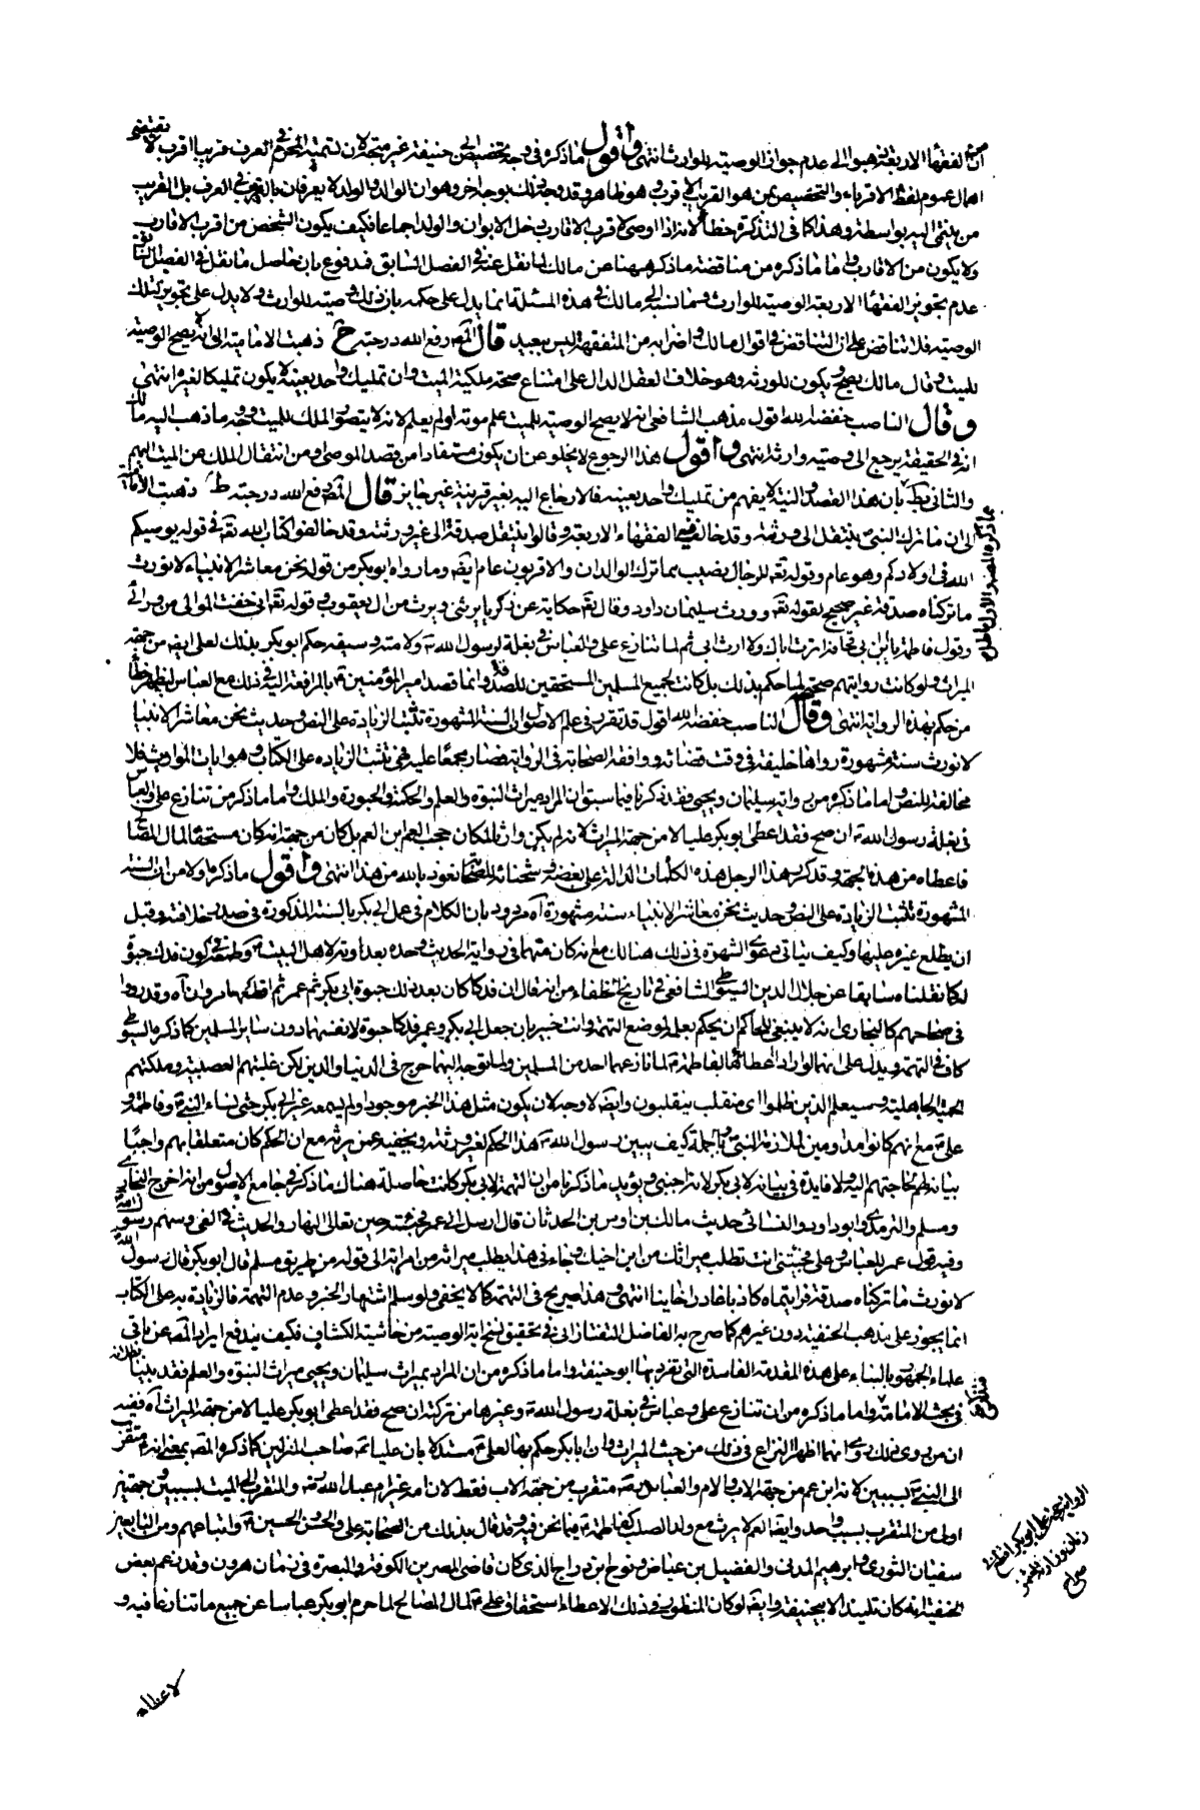 ان الفقهاء الاربعة ذهبوا الى عدم جواز الوصية للوارث انتهى واقول ما ذكره في وجه تخصيص ابي حنيفة غير متجه لان تسمية المحرم في العرف قريبا اقرب لا يقتضي
اهمال عموم لفظ الاقرباء والتخصيص بمن هو القريب الاقرب وهو ظاهر وقد وجه ذلك بوجه اخر وهو ان الوالد والولد لا يعرفان بالقريب في العرف بل القريب
من ينتمي اليه بواسطة وهذا كما في التذكرة خطأ لانه اذا اوصى لاقرب الاقارب دخل الابوان والولد اجماعا فكيف يكون الشخص من اقرب الاقارب
ولا يكون من الاقارب واما ما ذكره من مناقضة ما ذكره ههنا عن مالك لما نقل عنه في الفصل السابق فمدفوع بان حاصل ما نقل في الفصل السابق
عدم تجويز الفقهاء الاربعة الوصية للوارث وما نسب الى مالك في هذه المسئلة انما يدل على حكمه بان ذلك وصية للوارث ولا يدل على تجويز تلك
الوصية فلا تناقض على ان التناقض في اقوال مالك واضرابه من المتفقهة ليس ببعيد قال المص رفع الله درجته ح ذهبت الامامية الى انه لا يصح الوصية
للميت وقال مالك يصح ويكون للورثة وهو خلاف العقل الدال على امتناع صحة ملكية الميت وان تمليك واحد بعينه لا يكون تمليكا لغيره انتهى
وقال الناصب خفضه الله اقول مذهب الشافعي انه لا يصح الوصية للميت علم موته او لم يعلم لانه لا يتصور الملك للميت ووجه ما ذهب اليه مالك
انه في الحقيقة يرجع الى وصيته وارثه انتهى واقول هذا الرجوع لا يخلو عن ان يكون مستفادا من قصد الموصي او من انتقال الملك عن الميت اليهم
والثاني بط بان هذا القصد والنية لا يفهم من تمليك واحد بعينه فالارجاع اليه بغير قرينة غير جايز قال المص رفع الله درجته ط ذهبت الامامية
الى ان ما تركه النبي ص ينتقل الى ورثته وقد خالف فيه الفقهاء الاربعة وقالوا ينتقل صدقة الى غير ورثته وقد خالفوا كتاب الله تعه في قوله يوصيكم
الله في اولادكم وهو عام وقوله تعه للرجال نصيب مما ترك الوالدان والاقربون عام ايضه وما رواه ابو بكر من قوله نحن معاشر الانبياء لا نورث
ما تركناه صدقة غير صحيح لقوله تعه وورث سليمان داود وقال تعه حكاية عن زكريا يرثني ويرث من ال يعقوب وقوله تعه اني خفت الموالي من ورائي
وقول فاطمة يا ابن ابي قحافة اترث اباك ولا ارث ابي ثم لما تنازع علي والعباس في بغلة رسول الله ص ولامته وسيفه حكم ابو بكر بذلك لعلي ايضه من جهة
الميراث ولو كانت روايتهم صحيحة لما حكم بذلك بل كانت لجميع المسلمين المستحقين للصدقة وانما قصد امير المؤمنين ع بالمرافعة اليه في ذلك مع العباس ليظهر خطأ
من حكم بهذه الرواية انتهى وقال الناصب خفضه الله اقول قد تقرر في علم الاصول ان السنة المشهورة تثبت الزيادة على النص وحديث نحن معاشر الانبياء
لا نورث سنة مشهورة رواها خليفة في وقت قضائه ووافقه الصحابة في الرواية فصار مجمعا عليه فهي تثبت الزيادة على الكتاب وهو ايات المواريث فلا
مخالفة للنص واما ما ذكره من وراثة سليمان ويحيى فقد ذكرنا فيما سبق ان المراد ميراث النبوة والعلم والحكمة والحبورة والملك واما ما ذكره من تنازع علي والعباس
في بغلة رسول الله ص ان صح فقد اعطى ابو بكر عليا لا من جهة الميراث لانه لم يكن وارثا لمكان حجب العم ابن العم بل كان من جهة انه كان مستحقا لمال المصالح
فاعطاه من هذه الجهة وقد كرر هذا الرجل هذه الكلمات الدالة على بغضه وشحنائه للصحابة نعوذ بالله من هذا انتهى واقول ما ذكره اولا من ان السنة
المشهورة تثبت الزيادة على النص وحديث نحن معاشر الانبياء سنة مشهورة آه مردود بان الكلام في عمل ابي بكر بالسنة المذكورة في صدر خلافته وقبل
ان يطلع غيره عليها وكيف يتاتى دعوى الشهرة في ذلك هنالك مع انه كان متهما في رواية الحديث وحده بعداوته لاهل البيت ع وطمعه في كون فدك حبوة
له كما نقلناه سابقا عن جلال الدين السيوطي الشافعي في تاريخ الخلفاء من انه قال ان فدك كان بعد ذلك حبوة ابي بكر ثم عمر ثم اقطعها مروان آه وقد رووا
في صحاحهم كالبخاري انه لا ينبغي للحاكم ان يحكم بعلمه لموضع التهمة وانت خبير بان جعل ابي بكر وعمر فدكا حبوة لانفسهما دون ساير المسلمين كما ذكره السيوطي
كاف في التهمة ويدل على انهما لو ارادا اعطائها لفاطمة ع لما نازعهما احد من المسلمين ولما توجه اليهما حرج في الدنيا والدين لكن غلبتهم العصبية وملكتهم
الحمية الجاهلية وسيعلم الذين ظلموا اي منقلب ينقلبون وايضه لا وجه لان يكون مثل هذا الخبر موجودا ولم يسمعه غير ابي بكر حتى نساء النبي ص وفاطمة و
علي ع مع انهم كانوا مداومين لملازمة النبي ص وبالجملة كيف يبين رسول الله ص هذا الحكم لغير ورثته ويخفيه عمن يرثه مع ان الحكم كان متعلقا بهم واجبا
بيانه لهم لحاجتهم اليه ولا فايدة في بيانه لابي بكر لانه اجنبي ويؤيد ما ذكرنا من ان التهمة لابي بكر كانت حاصلة هناك ما ذكر في جامع الاصول من انه اخرج البخاري
ومسلم والترمذي وابو داود والنسائي حديث مالك بن اوس بن الحدثان قال ارسل الي عمر فجئته حين تعالى النهار والحديث في الفيء وسهم رسول الله
وفيه قول عمر للعباس وعلي فجئتني انت تطلب ميراثك من ابن اخيك وجاءني هذا يطلب ميراثه من امرأته الى قوله من طريق مسلم قال ابو بكر قال رسول الله
لا نورث ما تركناه صدقة فرايتماه كاذبا غادرا خاينا انتهى وهذا صريح في التهمة كما لا يخفى ولو سلم اشتهار الخبر وعدم التهمة فالزيادة به على الكتاب
انما يجوز على مذهب الحنفية دون غيرهم كما صرح به الفاضل التفتازاني في تحقيق نسخ اية الوصية من حاشية الكشاف فكيف يندفع ايراد المص عن باقي
علماء الجمهور بالبناء على هذه المقدمة الفاسدة التي تفرد بها ابو حنيفة واما ما ذكره من ان المراد بميراث سليمان ويحيى ميراث النبوة والعلم فقد بينا بطلانه
في بحث الامامة واما ما ذكره من ان تنازع علي وعباس في بغلة رسول الله ص وغيرها من تركته ان صح فقد اعطى ابو بكر عليا لا من جهة الميراث آه ففيه
ان من روى ذلك روى انهما اظهرا النزاع في ذلك من حيث الميراث وان ابا بكر حكم بها لعلي ع مستدلا بان عليا ع صاحب المنزلتين كما ذكره المص بمعنى انه متقرب
الى النبي ص بسببين لانه ابن عم من جهة الاب والام والعباس رضه متقرب من جهة الاب فقط لان امه غير ام عبد الله رضه والمتقرب الى الميت بسببين وجهتين
اولى من المتقرب بسبب واحد وايضه العم لا يرث مع ولد الصلب كفاطمة ع فيما نحن فيه وقد قال بذلك من الصحابة علي والحسن والحسين ع واتباعهم ومن التابعين
سفيان الثوري وابرهيم المدني والفضيل بن عياض ونوح ابن دراج الذي كان قاضي المصرين الكوفة والبصرة في زمان هرون وقد زعم بعض
الحنفية انه كان تلميذا لابي حنيفة وايضه لو كان المنظور في ذلك الاعطاء استحقاق علي ع لمال المصالح لما حرم ابو بكر عباسا عن جميع ما تنازعا فيه و
لاعطاه